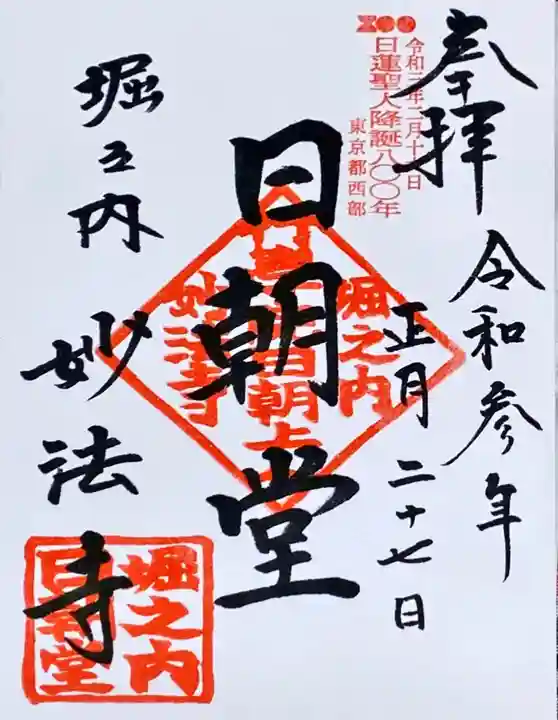 奉拝
令和参年
正月二十七日
800
令和三年二月十六日
日蓮聖人降誕八〇〇年
東京都西部
日朝堂
堀之内
日朝上
妙法寺
堀之内
妙法寺
堀之内
日朝堂